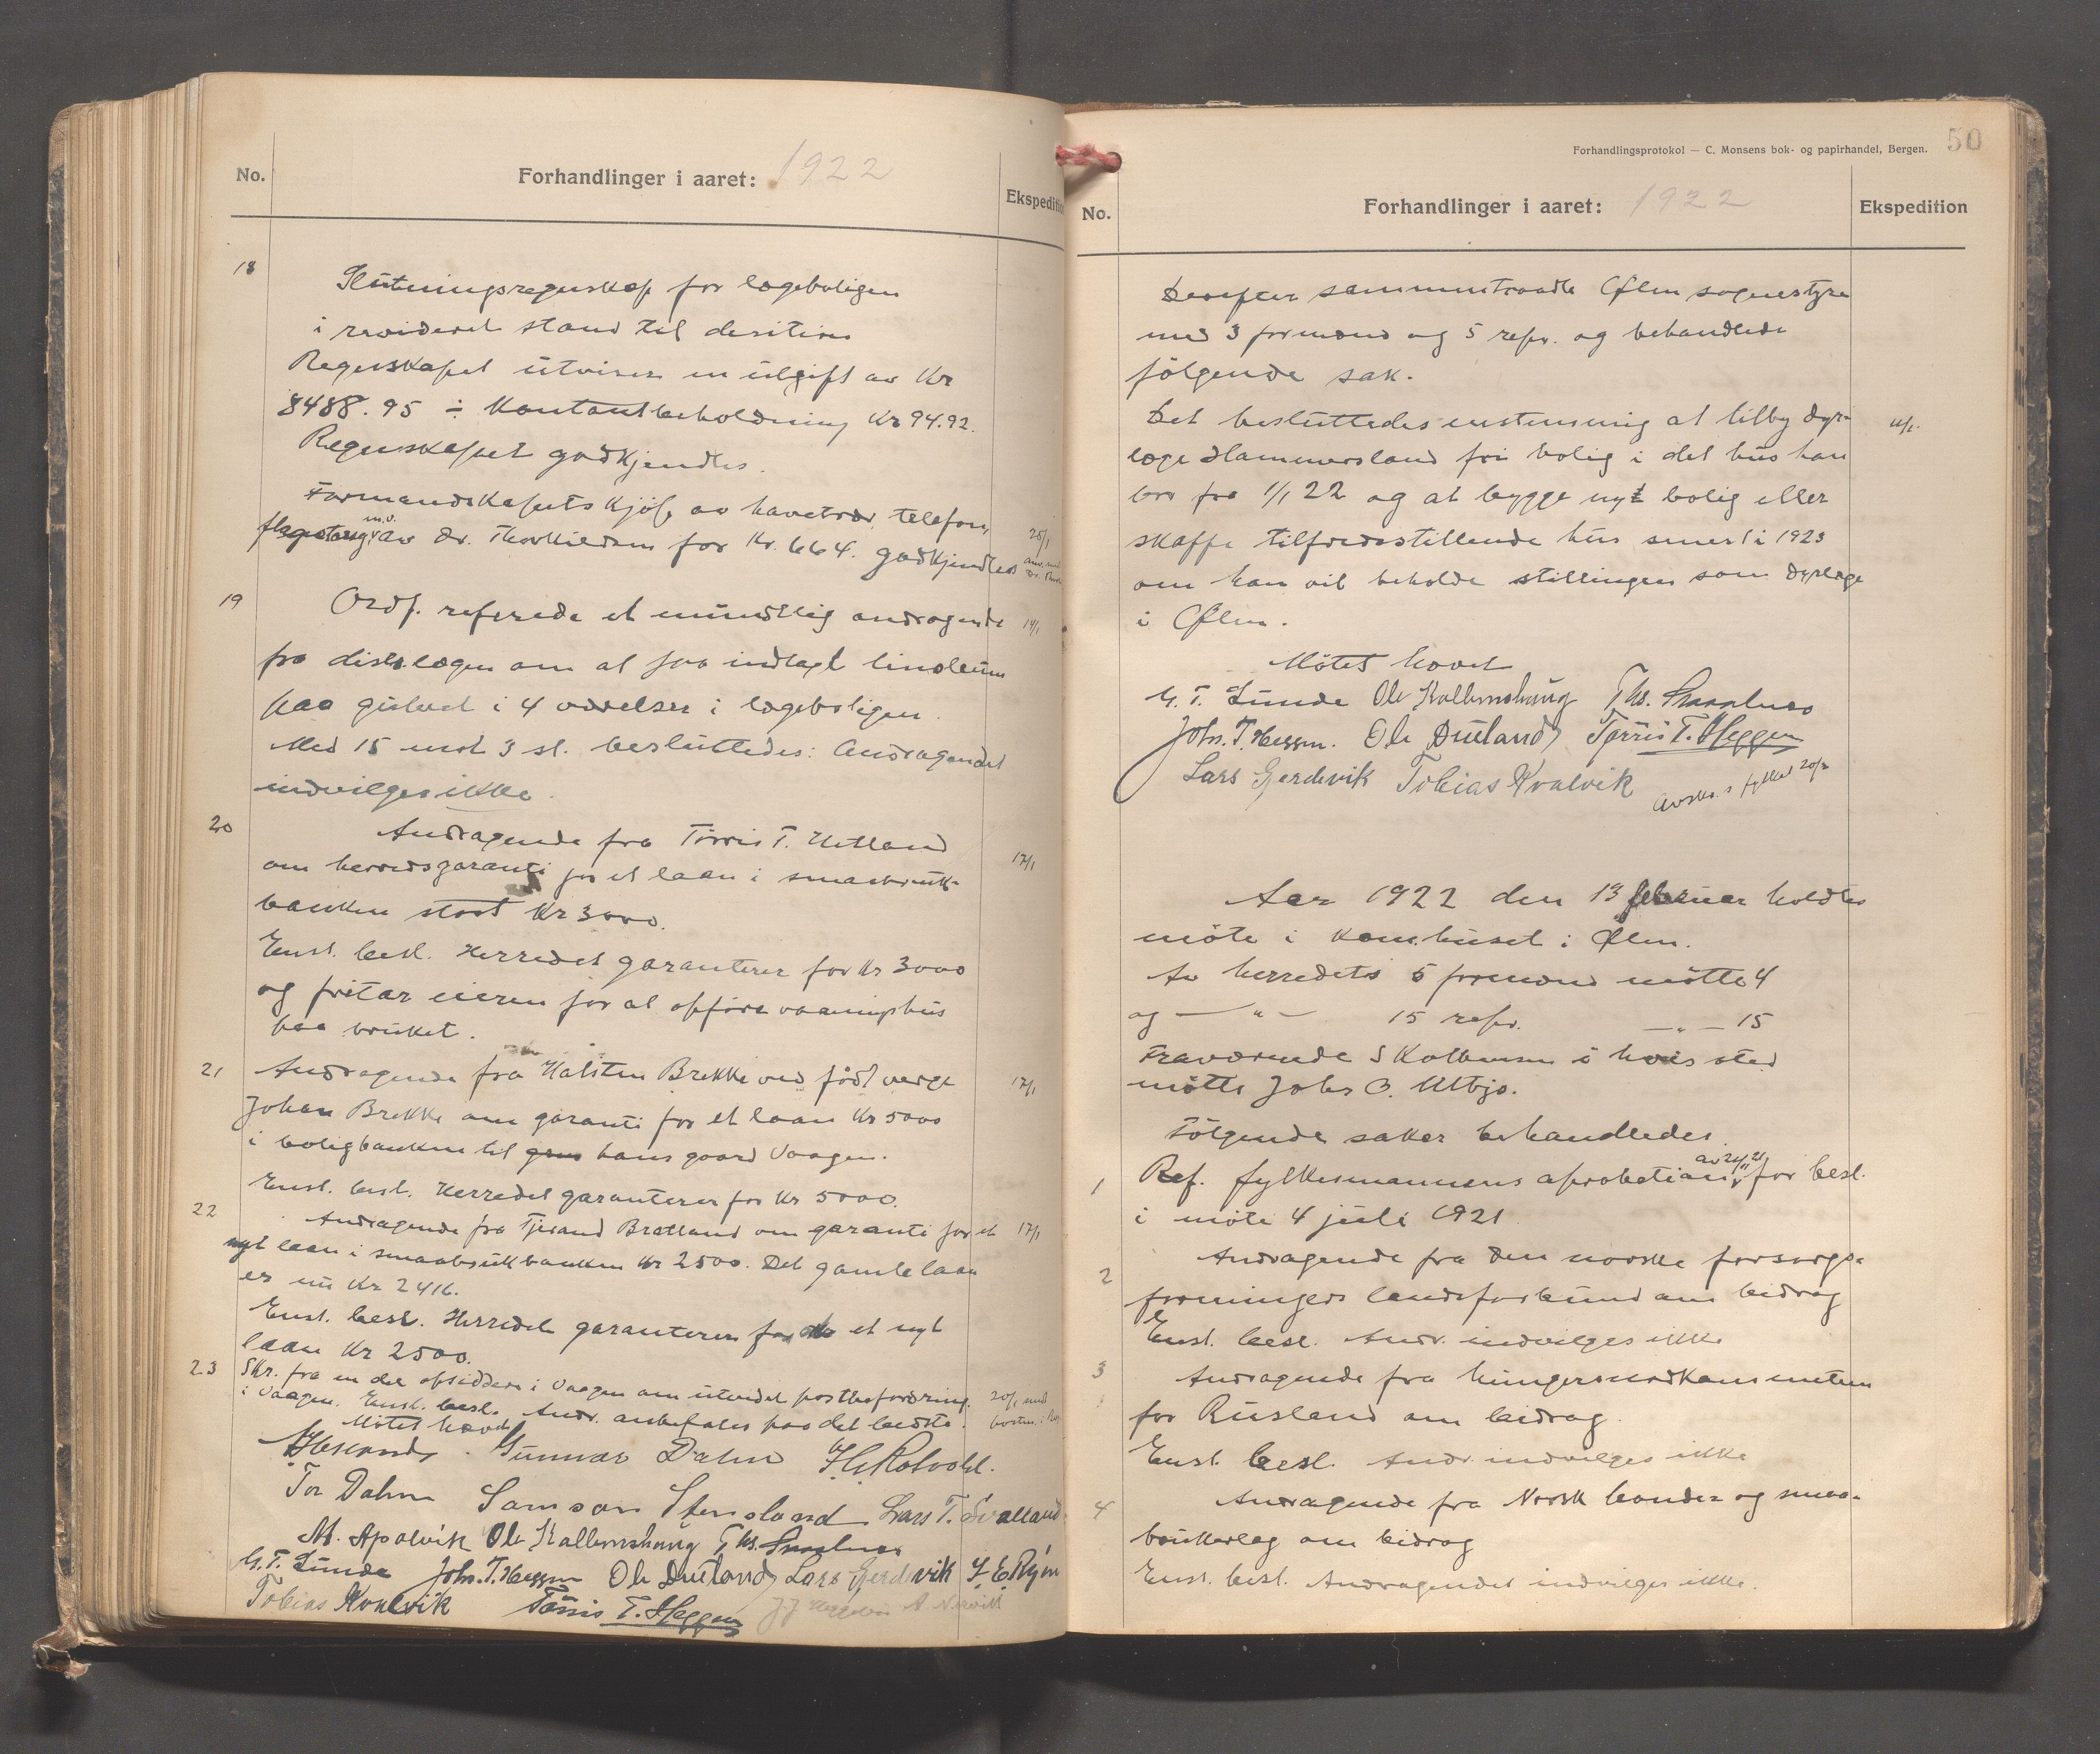 No.
Forhandlinger i aaret: 1922
Ekspedition
18
Slutningsregnskap for lægeboligen
i revideret stand til desition
Regnskapet utviser en utgift av Kr
8488.95 ÷ Kontantbeholdning Kr 94.92.
Regnskapet godkjendtes.
Formandskapets kjöp av havetrær, telefon,
flagstang m.v. av Dr. Thorkildsen for Kr. 664. godkjendtes
25/1
19
Ordf. referede et mundtlig andragende
14/1
fra distr.lægen om at faa indlagt linoleum
paa gulvet i 4 værelser i lægeboligen.
Med 15 mot 3 st. besluttedes: Andragendet
indvilges ikke.
20
Andragende fra Torris T. Hetland
17/1
om herredsgaranti for et laan i smaabruk-
banken stort Kr 3000.
Enst. besl. Herredet garanterer for Kr 3000
og fritar eieren for at opföre vaaningshus
paa bruket.
21
Andragende fra Halsten Brekke ved födt verge
17/1
Johan Brekke om garanti for et laan Kr 5000
i boligbanken til hans gaard Vaagen.
Enst. besl. Herredet garanterer for Kr 5000.
22
Andragende fra Tjerand Bratland om garanti for et
17/1
nyt laan i smaabrukbanken Kr 2500. Det gamle laan
er nu Kr 2416.
Enst. besl. Herredet garanterer for et nyt
laan Kr 2500.
23
Skr. fra en del opsiddere i Vaagen om utvidet postbefordring
20/1
i Vaagen. Enst. besl. Andr. anbefales paa det bedste.
Mötet hævet
Gunnar Dahm
Tor Dahm Samson Stensland Lars T. Svalland
M. Apalvik Ole Kallemshaug Ths.
G. T. Lunde Johs. T. Heggen Ole Dueland Lars Gjerdevik
Tobias Kvalvik Törris T. Heggen
Forhandlingsprotokol — C. Monsens bok- og papirhandel, Bergen.
50
No.
Forhandlinger i aaret: 1922
Ekspedition
Derefter sammentraadte Ølen sognestyre
med 3 formænd og 5 repr. og behandlede
fölgende sak.
Det besluttedes enstemmig at tilby dyr-
læge Hammersland fri bolig i det hus han
bor fra 1/1 22 og at bygge nyt bolig eller
skaffe tilfredsstillende hus senest i 1923
om han vil beholde stillingen som dyrlæge
i Ølen.
Mötet hævet
G. T. Lunde Ole Kallemshaug Ths.
Johs. T. Heggen. Ole Dueland Törris T. Heggen
Lars Gjerdevik Tobias Kvalvik
Avskr. t fylket 20/2
Aar 1922 den 13 februar holdtes
möte i kom.huset i Ølen.
Av herredets 5 formænd mötte 4
og — " — 15 repr. — " — 15
Fraværende S Kolbensen i hvis sted
mötte Johs O. Utbjo.
Fölgende saker behandledes.
1
Ref. fylkesmannens aprobation av 21/11 21 for besl.
i möte 4 juli 1921
2
Andragende fra den norske forsorgs-
foreningers landsforbund om bidrag
Enst. besl. Andr. indvilges ikke
3
Andragende fra hungersnödkommiteen
for Rusland om bidrag.
Enst. besl. Andr. indvilges ikke
4
Andragende fra Norsk bonde- og smaa-
brukerlag om bidrag
Enst. besl. Andragendet indvilges ikke.